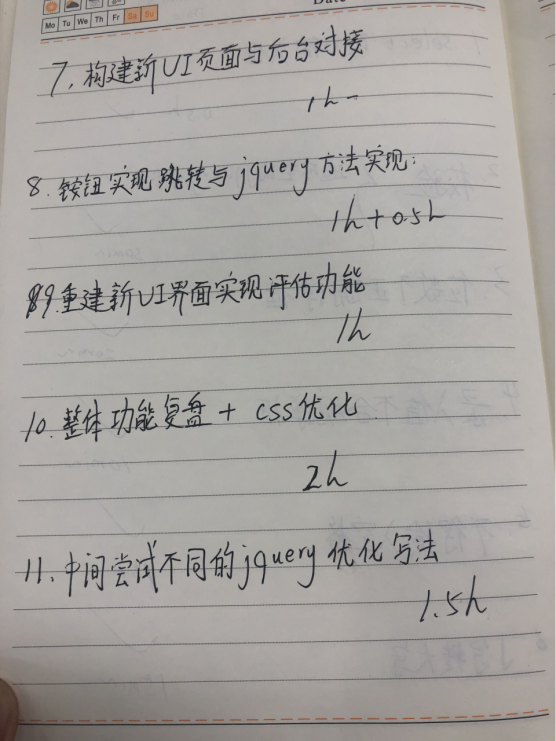 Date
Mo Tu We Th Fr Sa Su
7. 构建新UI页面与后台对接
1h -
8. 按钮实现跳转与jquery方法实现:
1h + 0.5h
9. 重建新UI界面实现评估功能
1h
10. 整体功能复盘 + css优化
2h
11. 中间尝试不同的jquery优化写法
1.5h